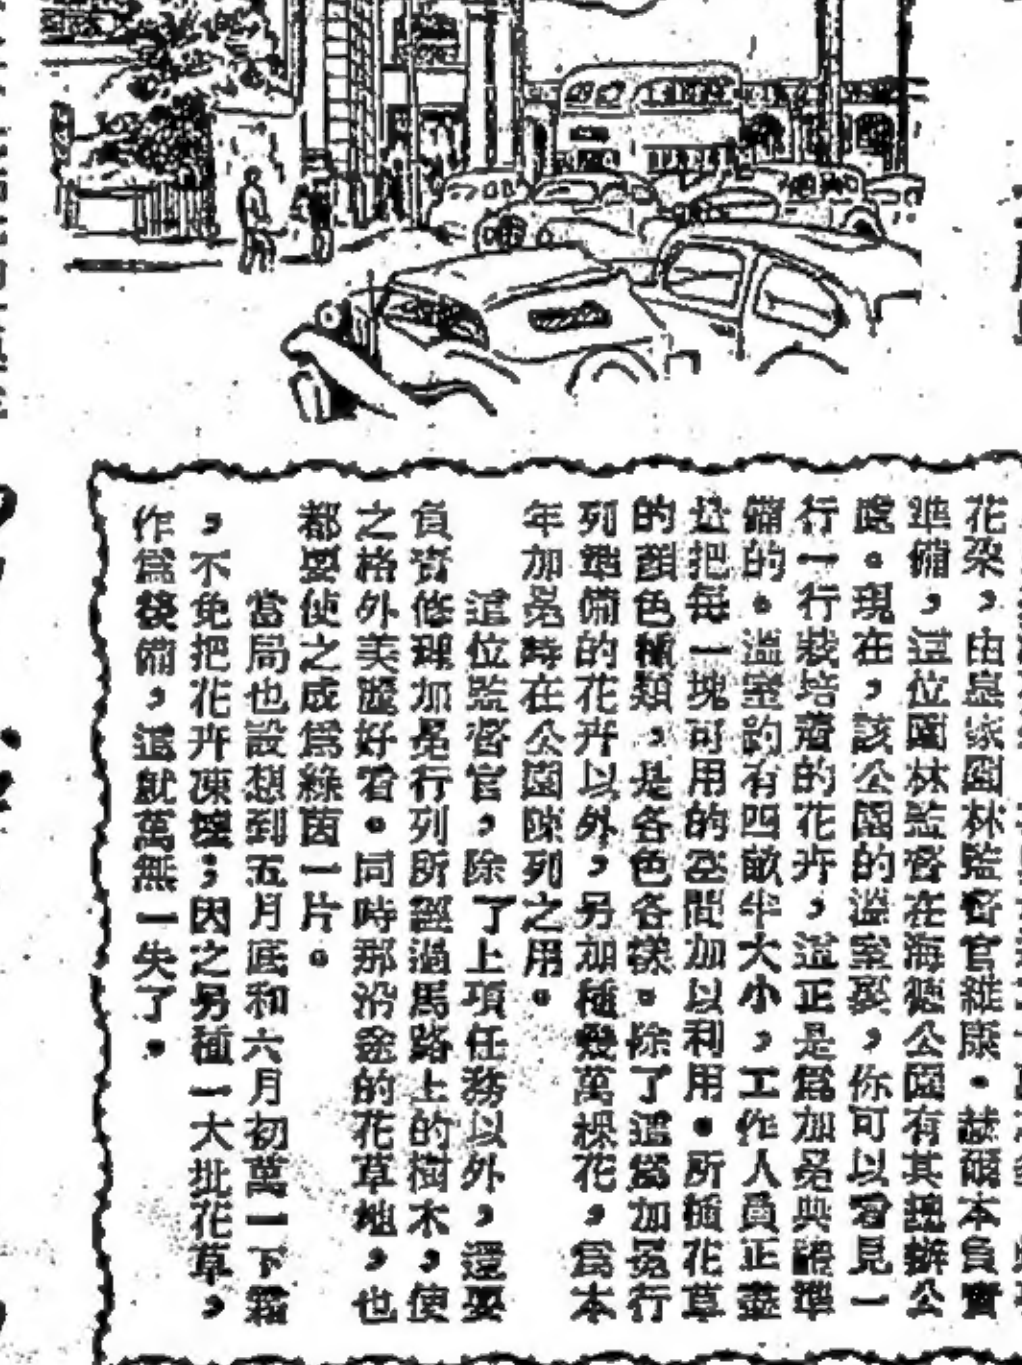 花朶，由皇家園林監督官維康·赫爾本負責
準備，這位園林監督在海德公園有其總辦公
處。現在，該公園的溫室裏，你可以看見一
行一行栽培着的花卉，這正是爲加冕典禮準
備的。溫室約有四畝半大小，工作人員正盡
量把每一塊可用的空間加以利用。所種花草
的顏色種類，是各色各樣。除了這爲加冕行
列準備的花卉以外，另加種幾萬棵花，爲本
年加冕時在公園陳列之用。
這位監督官，除了上項任務以外，還要
負責修理加冕行列所經過馬路上的樹木，使
之格外美麗好看。同時那沿途的花草地，也
都要使之成爲綠茵一片。
當局也設想到五月底和六月初萬一下霜
，不免把花卉凍壞；因之另種一大批花草，
作爲後備，這就萬無一失了。